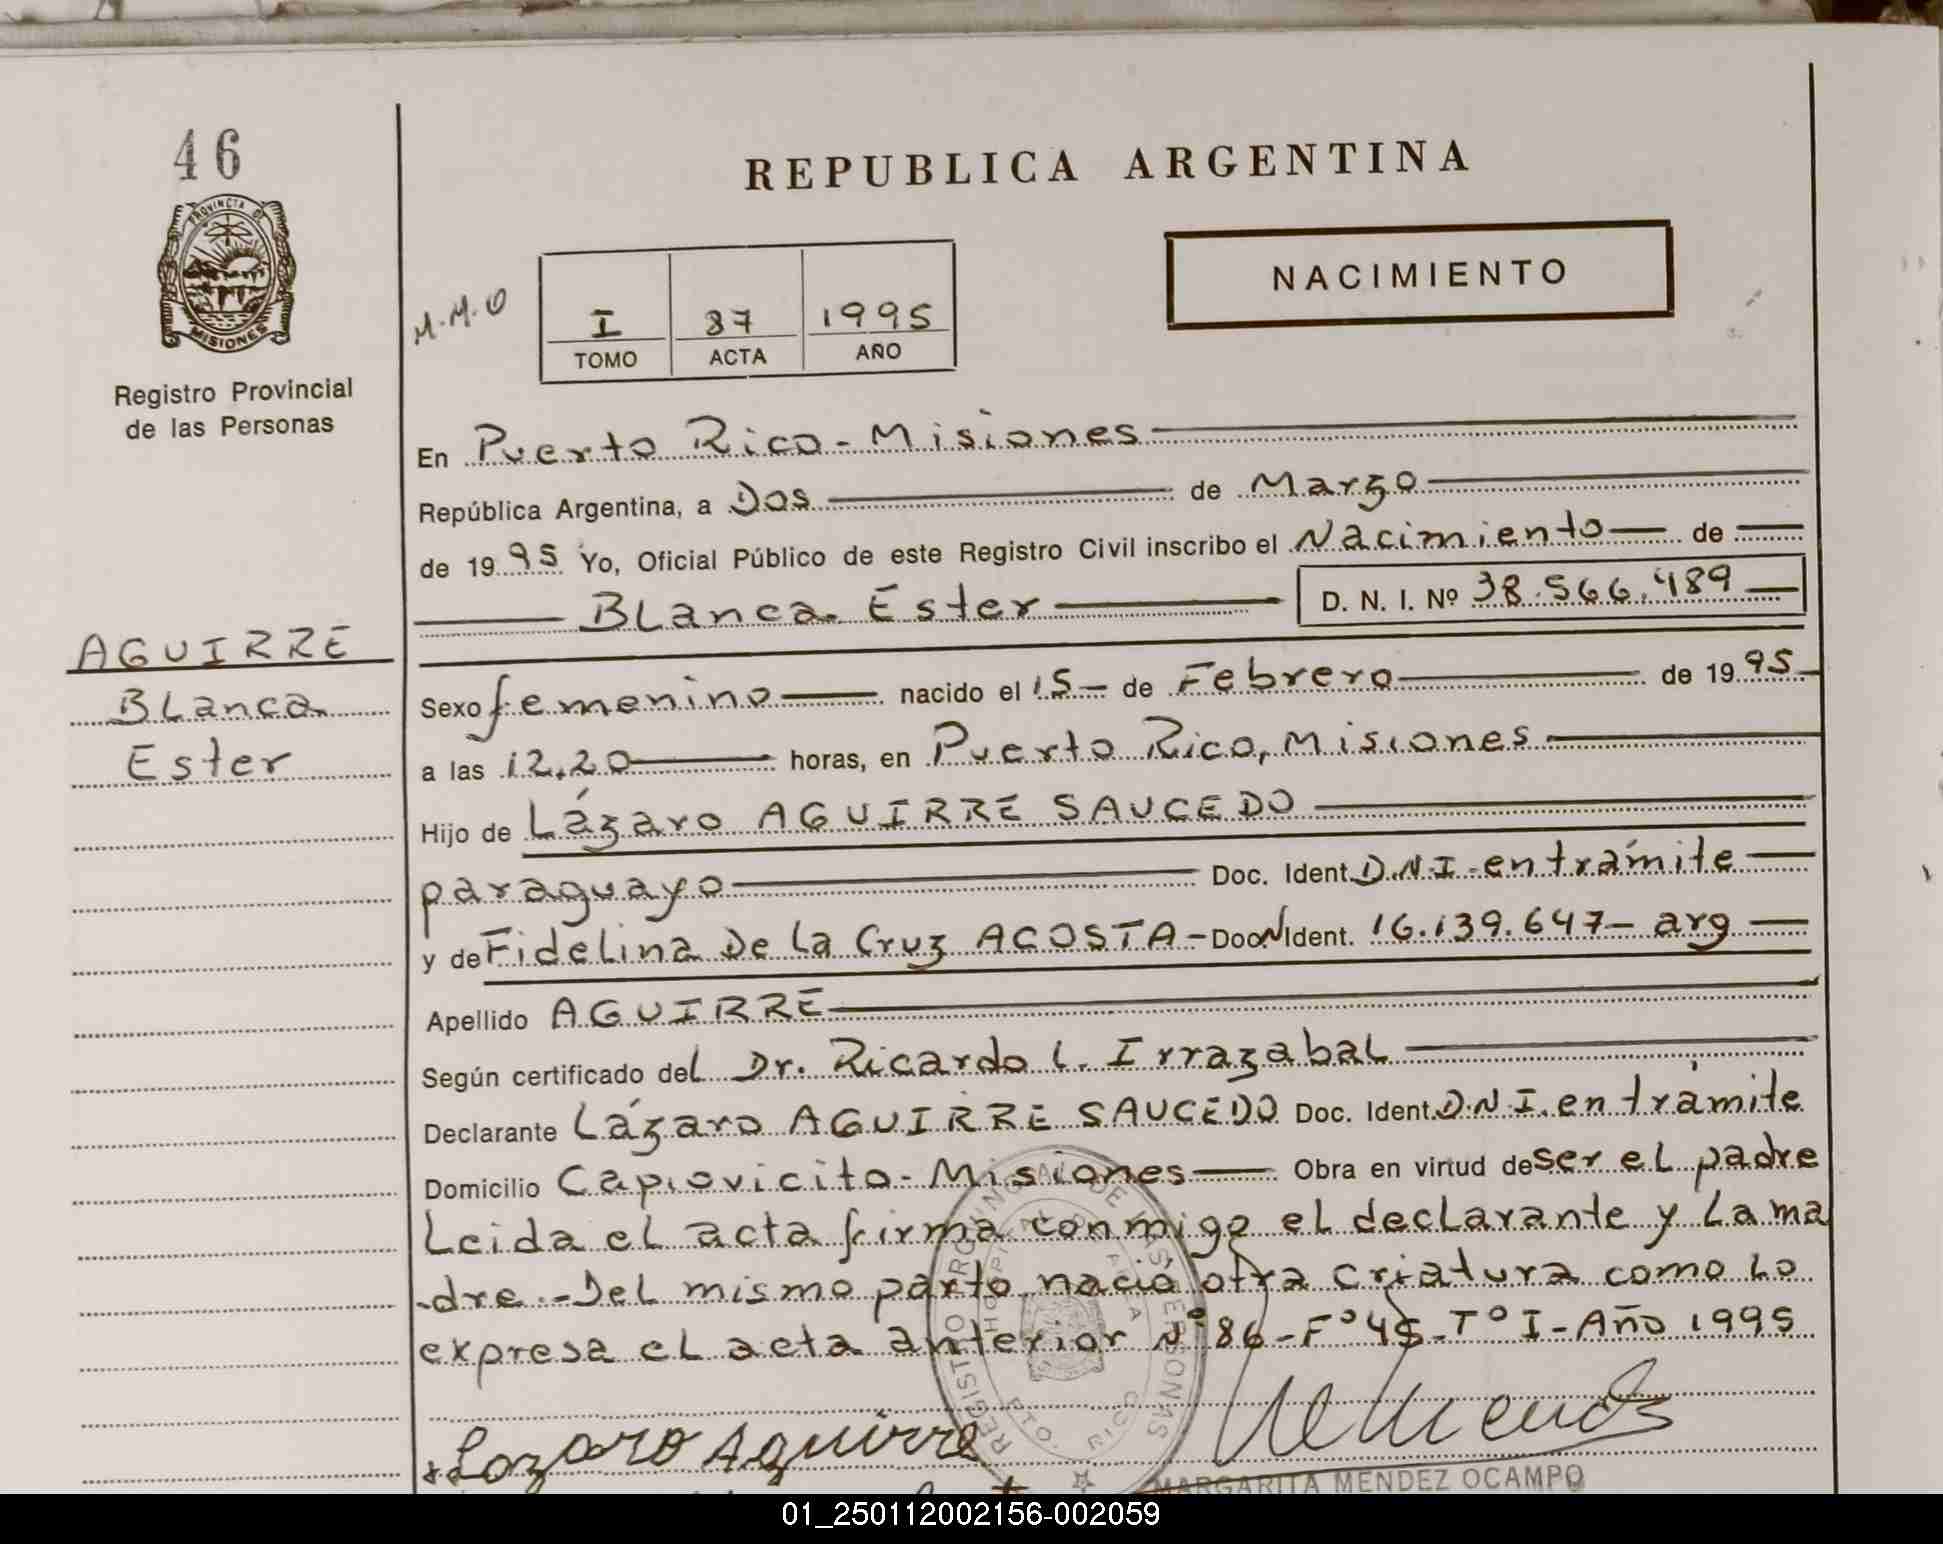 46
PROVINCIA DE
MISIONES
Registro Provincial
de las Personas
REPUBLICA ARGENTINA
NACIMIENTO
M.M.O
I 87 1995
TOMO ACTA AÑO
En Puerto Rico - Misiones
República Argentina, a Dos de Marzo
de 1995 Yo, Oficial Público de este Registro Civil inscribo el Nacimiento de
Blanca Ester D. N. I. Nº 38.566.489
AGUIRRE
Blanca
Ester
Sexo femenino nacido el 15 de Febrero de 1995
a las 12.20 horas, en Puerto Rico, Misiones
Hijo de Lázaro AGUIRRE SAUCEDO
paraguayo Doc. Ident. D.N.I. en trámite
y de Fidelina De la Cruz ACOSTA - Doc. Ident. 16.139.647 - arg
Apellido AGUIRRE
Según certificado del Dr. Ricardo L. Irrazabal
Declarante Lázaro AGUIRRE SAUCEDO Doc. Ident. D.N.I. en trámite
Domicilio Capiovicito - Misiones Obra en virtud de ser el padre
Leida el acta firma conmigo el declarante y la ma
-dre.- Del mismo parto nació otra criatura como lo
expresa el acta anterior Nº 86 - Fº 45 - Tº I - Año 1995
REGISTRO PROVINCIAL DE LAS PERSONAS
PTO. RICO
Lozaro Aguirre
MARGARITA MENDEZ OCAMPO
01_250112002156-002059